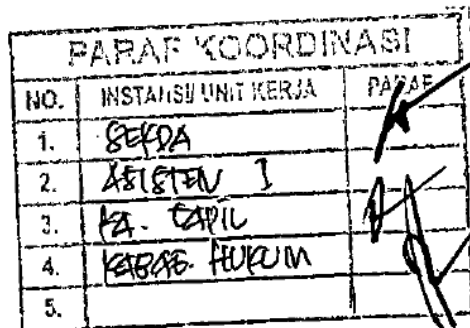 PARAF KOORDINASI
NO. INSTANSI/ UNIT KERJA PARAF
1. SEKDA
2. ASISTEN I
3. KA. CAPIL
4. KABAG. HUKUM
5.